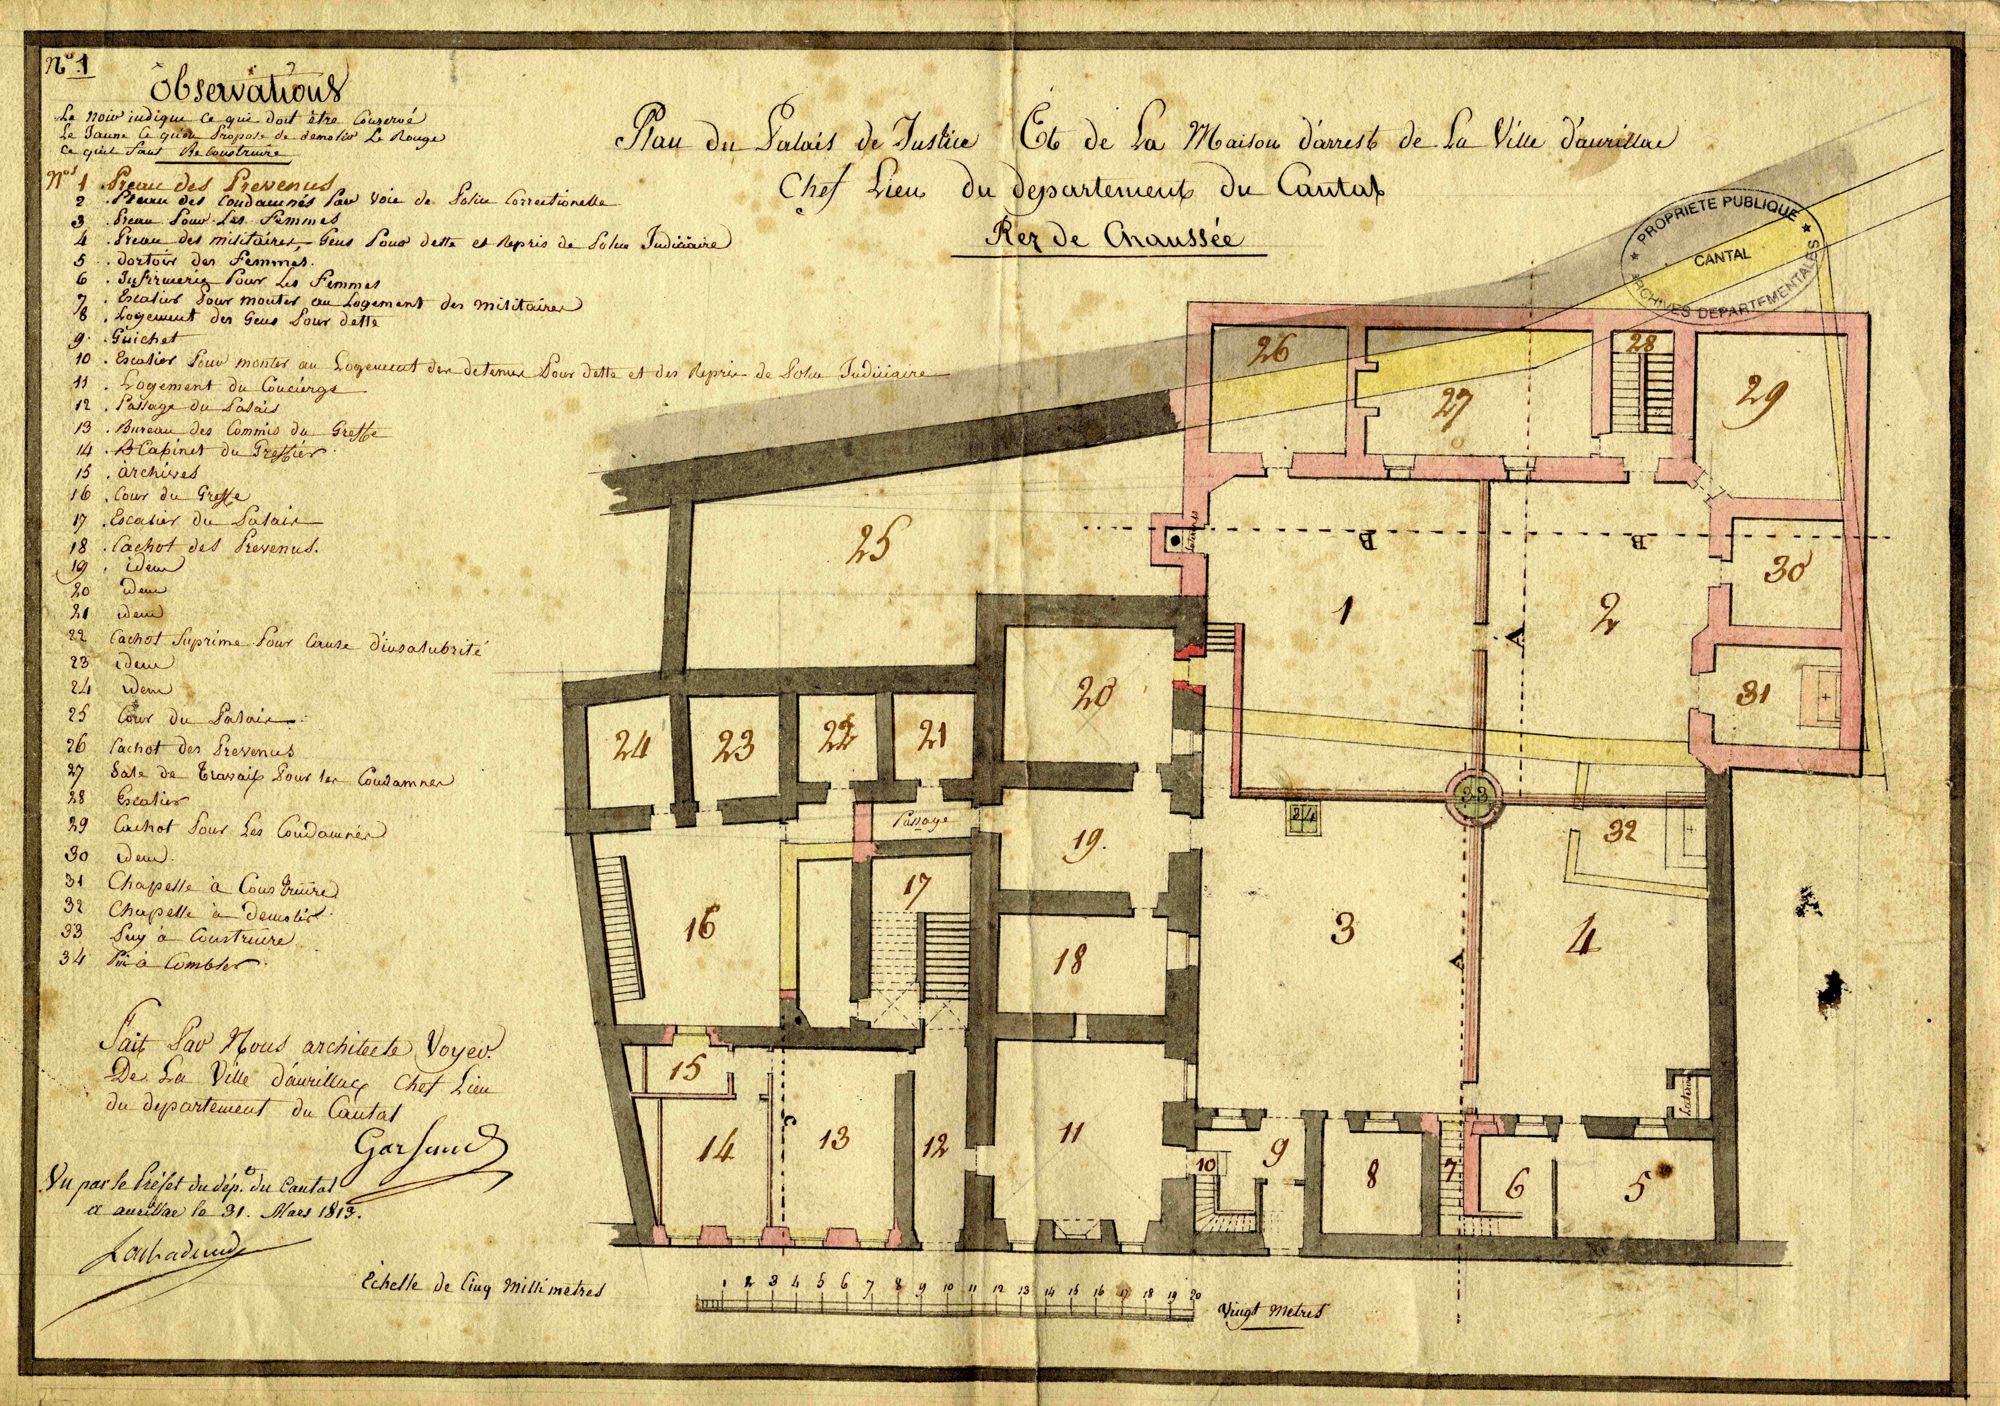 N° 1
Observations
Le noir indique ce qui doit être Conservé
Le Jaune Ce qu'on Propose de demolir Le Rouge
Ce qu'il faut Reconstruire
Plan du Palais de Justice Et de La Maison d'arrest de La Ville d'aurillac
Chef Lieu du departement du Cantal
Rez de Chaussée
PROPRIETE PUBLIQUE
CANTAL
ARCHIVES DEPARTEMENTALES
Nos 1 Preau des Prevenus
2 . Preau des Condamnés Par Voie de Police Correctionelle
3 . Preau Pour Les Femmes
4 . Preau des militaires, Gens Pour dette et Repris de Police Judiciaire
5 . dortoir des Femmes.
6 . Infirmerie Pour Les Femmes
7 . Escalier Pour monter au Logement des militaires
8 . Logement des Gens Pour dette
9 . Guichet
10 . Escalier Pour monter au Logement des detenus Pour dette et des Repris de Police Judiciaire
11 . Logement du Concierge
12 . Passage du Palais
13 . Bureau des Commis du Greffe
14 . Cabinet du Greffier
15 . archives
16 . Cour du Greffe
17 . Escalier du Palais
18 . Cachot des Prevenus.
19 . idem
20 idem
21 idem
22 Cachot Suprime Pour Cause d'insalubrité
23 idem
24 idem
25 Cour du Palais
26 Cachot des Prevenus
27 Sale de Travail Pour les Condamnes
28 Escalier
29 Cachot Pour Les Condamnés
30 idem.
31 Chapelle à Construire
32 Chapelle à demolir
33 Puy à Construire
34 à Combler
Fait Par Nous architecte Voyer
De La Ville d'aurillac Chef Lieu
du departement du Cantal
Vu par le Préfet du dép.t du Cantal
a aurillac le 31. Mars 1813.
26
27
28
29
25
Latrines
B
B
30
1
2
A
31
20
24
23
22
21
33
34
32
Passage
19.
17
16
3
4
A
18
15
Latrines
C
14
13
12
11
10
9
8
7
6
5
Echelle de Cinq Millimetres
1 2 3 4 5 6 7 8 9 10 11 12 13 14 15 16 17 18 19 20
Vingt Metres